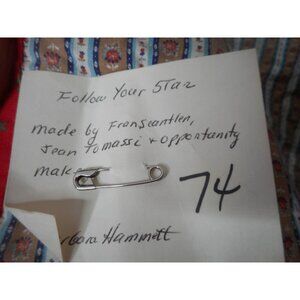 Follow Your Star
made by Fran Scantlen,
Jean Tomassi & opportunity
mak
74
rbara Hammett